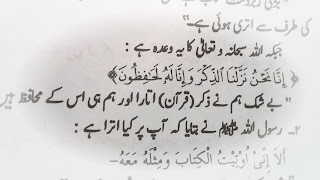 کی طرف سے اتری ہوئی ہے۔"
جبکہ اللہ سبحانہ و تعالیٰ کا یہ وعدہ ہے :
﴿إِنَّا نَحْنُ نَزَّلْنَا الذِّكْرَ وَإِنَّا لَهُ لَحَافِظُونَ﴾
"بے شک ہم نے ذکر (قرآن) اتارا اور ہم ہی اس کے محافظ ہیں
۲۔ رسول اللہ ﷺ نے بتایا کہ آپ پر کیا اترا ہے :
أَلَا إِنِّي أُوتِيتُ الْكِتَابَ وَمِثْلَهُ مَعَهُ-